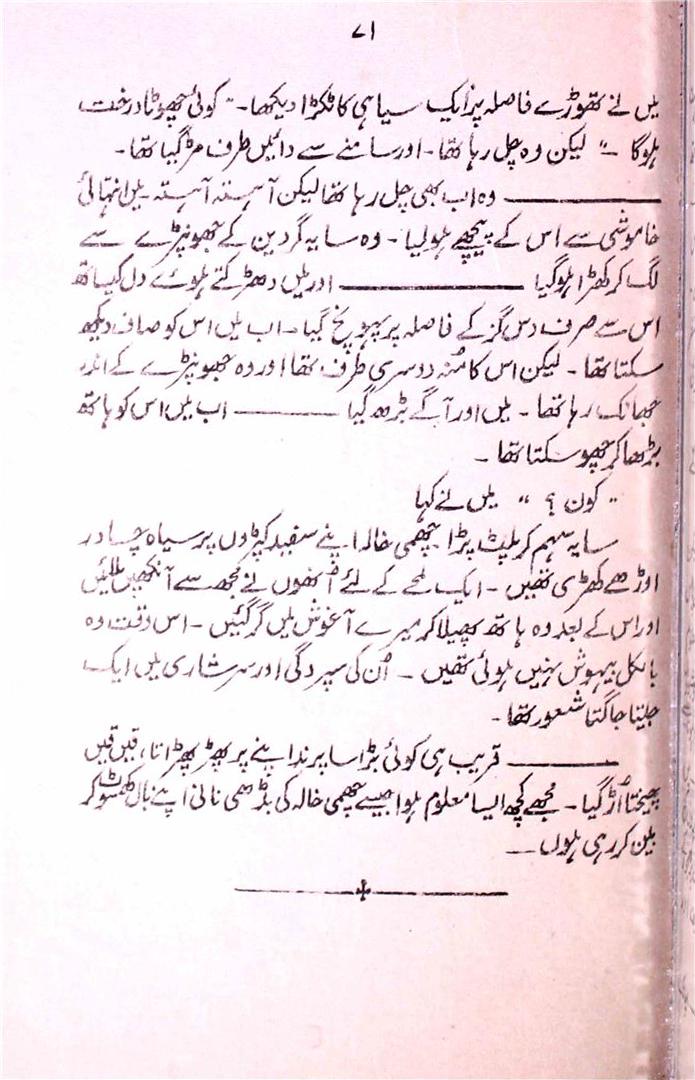 ۷۱
میں نے تھوڑے فاصلہ پر ایک سیاہی کا ٹکڑا دیکھا۔ "کوئی چھوٹا درخت
ہوگا۔" لیکن وہ چل رہا تھا۔ اور سامنے سے دائیں طرف مڑ گیا تھا۔
——— وہ اب بھی چل رہا تھا لیکن آہستہ آہستہ۔ میں انتہائی
خاموشی سے اس کے پیچھے ہولیا۔ وہ سایہ گردین کے جھونپڑے سے
لگ کر کھڑا ہوگیا ——— اور میں دھڑکتے ہوئے دل کیساتھ
اس سے صرف دس گز کے فاصلہ پر پہونچ گیا۔ اب میں اس کو صاف دیکھ
سکتا تھا۔ لیکن اس کا مُنہ دوسری طرف تھا اور وہ جھونپڑے کے اندر
جھانک رہا تھا۔ میں اور آگے بڑھ گیا ——— اب میں اس کو ہاتھ
بڑھا کر چھو سکتا تھا۔
"کون؟" میں نے کہا
سایہ سہم کر پلٹ پڑا۔ چھمی خالہ اپنے سفید کپڑوں پر سیاہ چادر
اوڑھے کھڑی تھیں۔ ایک لمحے کے لئے اُنھوں نے مجھ سے آنکھیں ملائیں
اور اس کے بعد وہ ہاتھ پھیلا کر میرے آغوش میں گر گئیں۔ اس وقت وہ
بالکل بیہوش نہیں ہوئی تھیں۔ اُن کی سپردگی اور سرشاری میں ایک
جیتا جاگتا شعور تھا۔
——— قریب ہی کوئی بڑا سا پرند اپنے پر پھڑپھڑاتا، قیں قیں
چیختا اُڑ گیا۔ مجھے کچھ ایسا معلوم ہوا جیسے چھمی خالہ کی بڑھی نانی اپنے بال کھسوٹ کر
بین کر رہی ہوں۔